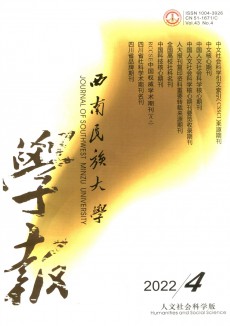 ISSN 1004-3926
CN 51-1671/C
Vol.43 No.4
中文社会科学引文索引(CSSCI)来源期刊
中文核心期刊
中国人文社会科学核心期刊
中国人文社会科学期刊
全国高校社科名刊
RCCSE中国权威学术期刊
中国科技核心期刊
四川省社科学术期刊名刊
四川品牌期刊
西南民族大学
JOURNAL OF SOUTHWEST MINZU UNIVERSITY
學报
2022/4
人文社会科学版
Humanities and Social Science